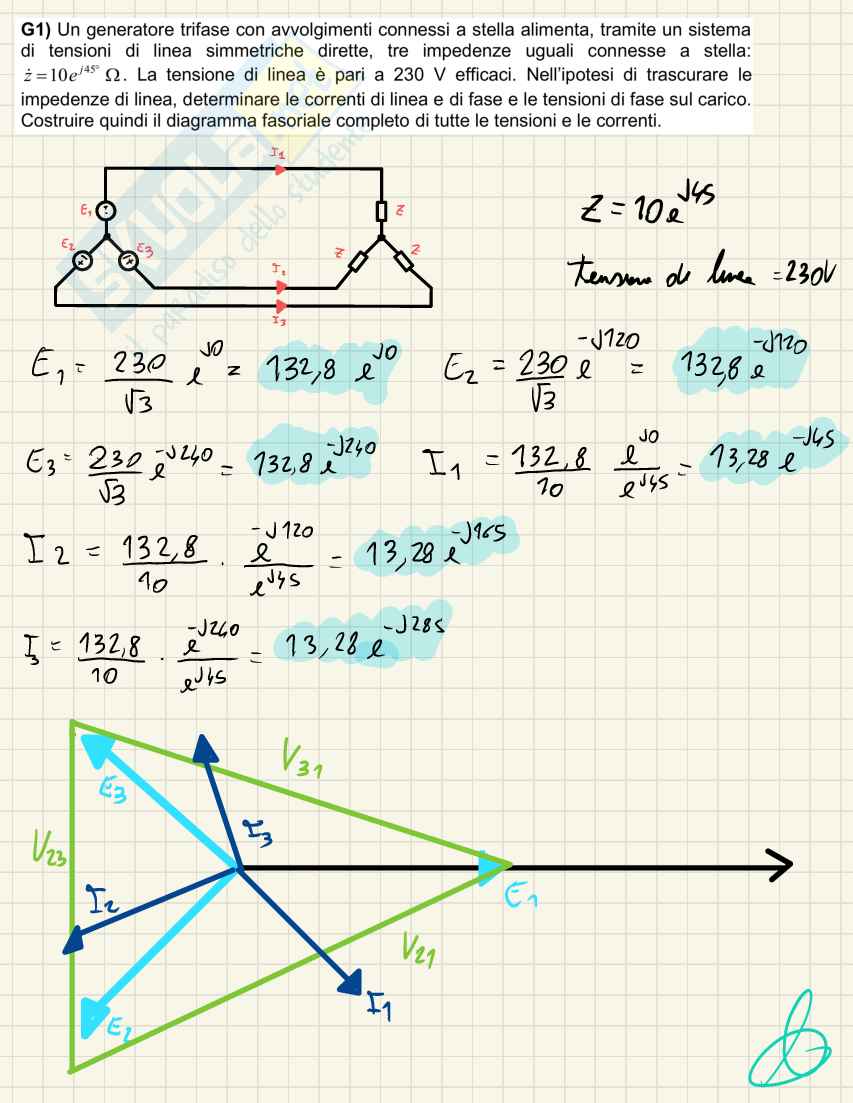 G1) Un generatore trifase con avvolgimenti connessi a stella alimenta, tramite un sistema
di tensioni di linea simmetriche dirette, tre impedenze uguali connesse a stella:
ż=10e^{j45°} Ω. La tensione di linea è pari a 230 V efficaci. Nell'ipotesi di trascurare le
impedenze di linea, determinare le correnti di linea e di fase e le tensioni di fase sul carico.
Costruire quindi il diagramma fasoriale completo di tutte le tensioni e le correnti.
I1
E1
Z
E2
E3
Z
Z
I2
I3
il paradiso dello studente
Z = 10 e^{J45}
tensione di linea = 230V
E1 = 230/√3 e^{J0} = 132,8 e^{J0}
E2 = 230/√3 e^{-J120} = 132,8 e^{-J120}
E3 = 230/√3 e^{-J240} = 132,8 e^{-J240}
I1 = 132,8/10 e^{J0}/e^{J45} = 13,28 e^{-J45}
I2 = 132,8/10 · e^{-J120}/e^{J45} = 13,28 e^{-J165}
I3 = 132,8/10 · e^{-J240}/e^{J45} = 13,28 e^{-J285}
V31
E3
I3
V23
E1
I2
V21
I1
E2